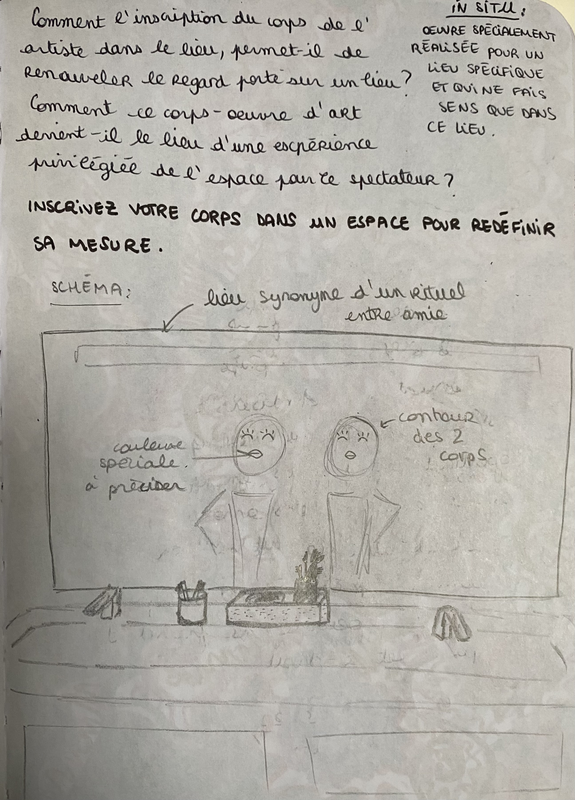 Comment l'inscription du corps de l'
artiste dans le lieu, permet-il de
renouveler le regard porté sur un lieu?
Comment ce corps-oeuvre d'art
devient-il le lieu d'une expérience
privilégiée de l'espace par le spectateur?
IN SITU:
OEUVRE SPÉCIALEMENT
RÉALISÉE POUR UN
LIEU SPÉCIFIQUE
ET QUI NE FAIS
SENS QUE DANS
CE LIEU.
INSCRIVEZ VOTRE CORPS DANS UN ESPACE POUR REDÉFINIR
SA MESURE.
SCHÉMA:
lieu synonyme d'un rituel
entre amie
couleur
spéciale.
à préciser
contour
des 2
corps